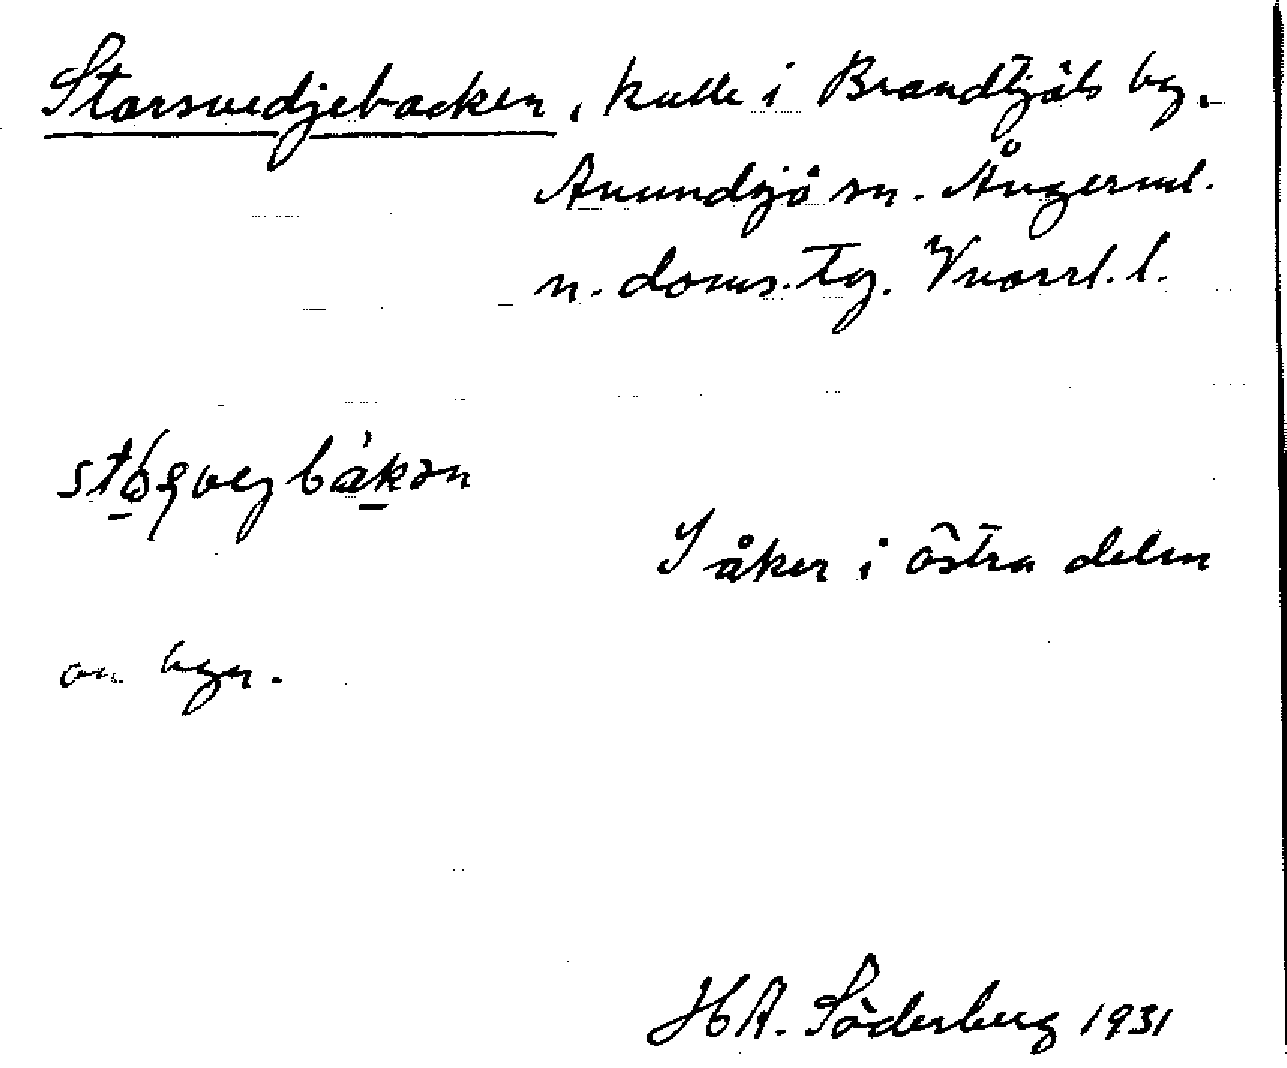 Storsvedjebacken, kulle i Brandtjäls by.
Anundsjö sn. Ångerml.
n. doms. tg. Vnorrl. l.
I åker i östra delen
av byn.
HA. Söderberg 1931